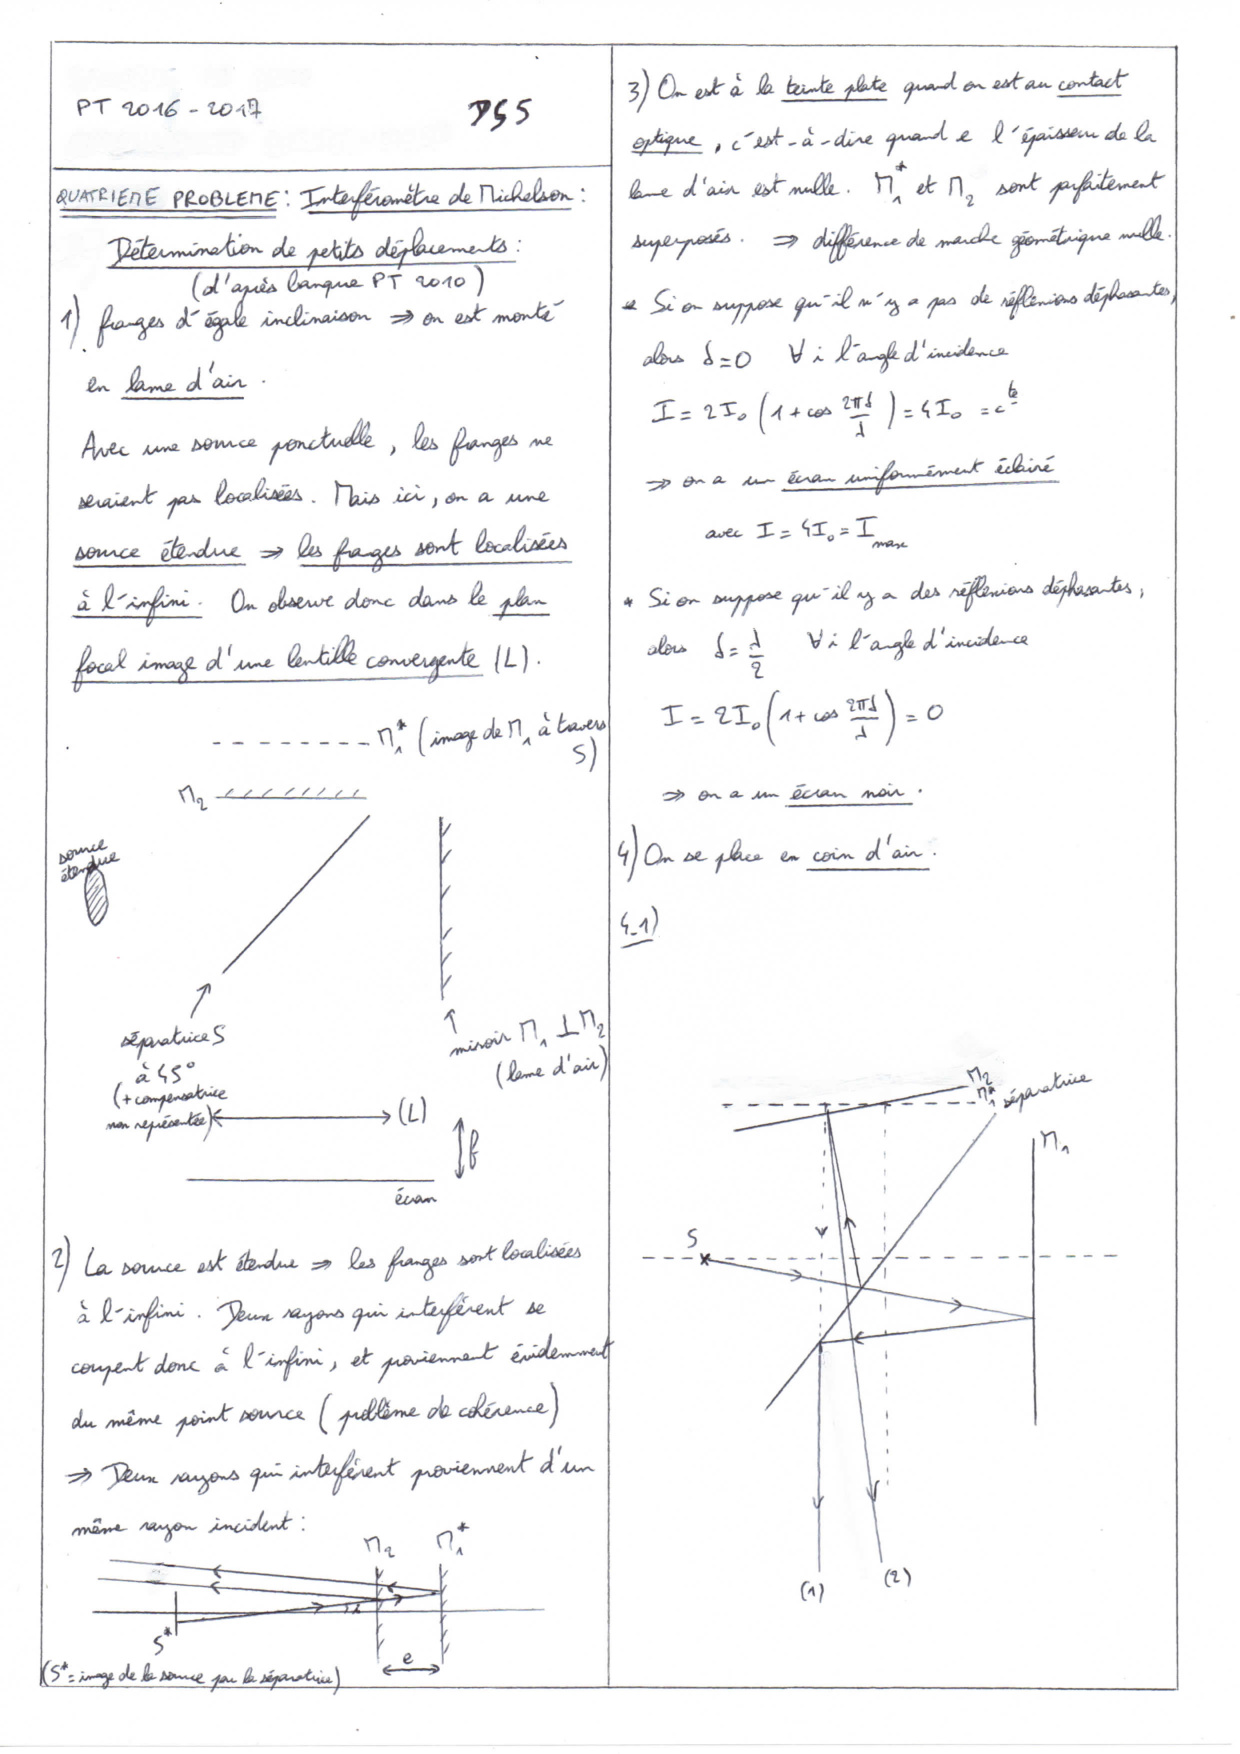 PT 2016-2017
DS5
QUATRIEME PROBLEME : Interféromètre de Michelson :
Détermination de petits déplacements :
(d'après banque PT 2010)
1) franges d'égale inclinaison ⇒ on est monté
en lame d'air.
Avec une source ponctuelle, les franges ne
seraient pas localisées. Mais ici, on a une
source étendue ⇒ les franges sont localisées
à l'infini. On observe donc dans le plan
focal image d'une lentille convergente (L).
M₁* (image de M₁ à travers
S)
M₂
source
étendue
séparatrice S
à 45°
(+ compensatrice
non représentée)
miroir M₁ ⊥ M₂
(lame d'air)
(L)
f
écran
2) La source est étendue ⇒ les franges sont localisées
à l'infini. Deux rayons qui interfèrent se
coupent donc à l'infini, et proviennent évidemment
du même point source (problème de cohérence)
⇒ Deux rayons qui interfèrent proviennent d'un
même rayon incident :
M₂ M₁*
i
S*
e
(S* = image de la source par la séparatrice)
3) On est à la teinte plate quand on est au contact
optique, c'est-à-dire quand e l'épaisseur de la
lame d'air est nulle. M₁* et M₂ sont parfaitement
superposés. ⇒ différence de marche géométrique nulle.
* Si on suppose qu'il n'y a pas de réflexions déphasantes,
alors δ=0 ∀ i l'angle d'incidence
I = 2I₀ (1 + cos 2πδ/λ) = 4I₀ = cte
⇒ on a un écran uniformément éclairé
avec I = 4I₀ = I max
* Si on suppose qu'il y a des réflexions déphasantes,
alors δ = λ/2 ∀ i l'angle d'incidence
I = 2I₀ (1 + cos 2πδ/λ) = 0
⇒ on a un écran noir.
4) On se place en coin d'air.
4_1)
M₂
M₁*
séparatrice
M₁
S
(1)
(2)